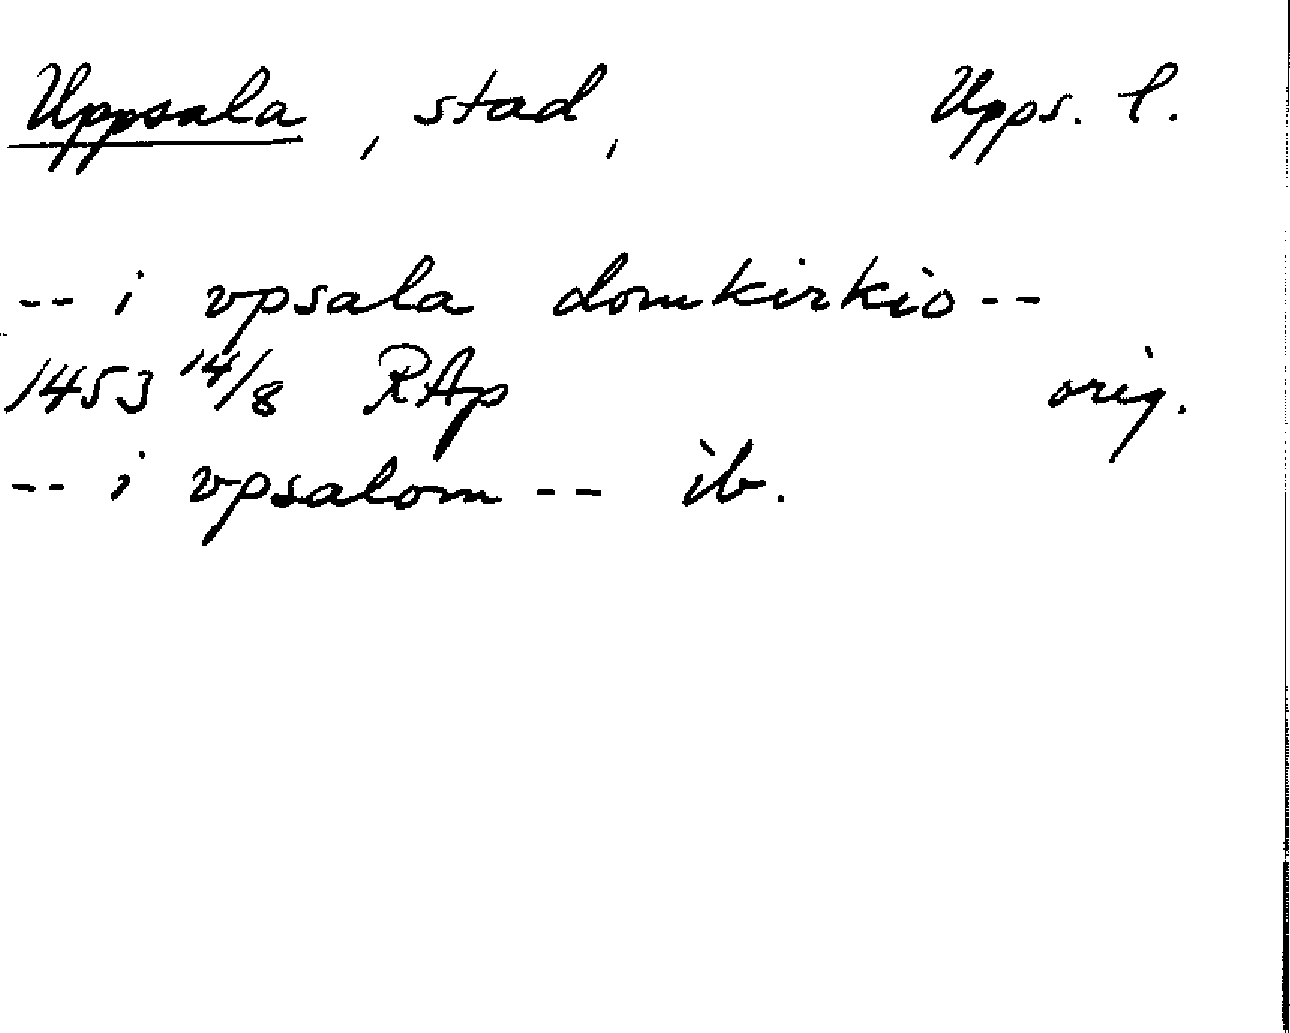 Uppsala, stad, Upps. l.
-- i vpsala domkirkio--
1453 14/8 RAp orig.
-- i vpsalom -- ib.